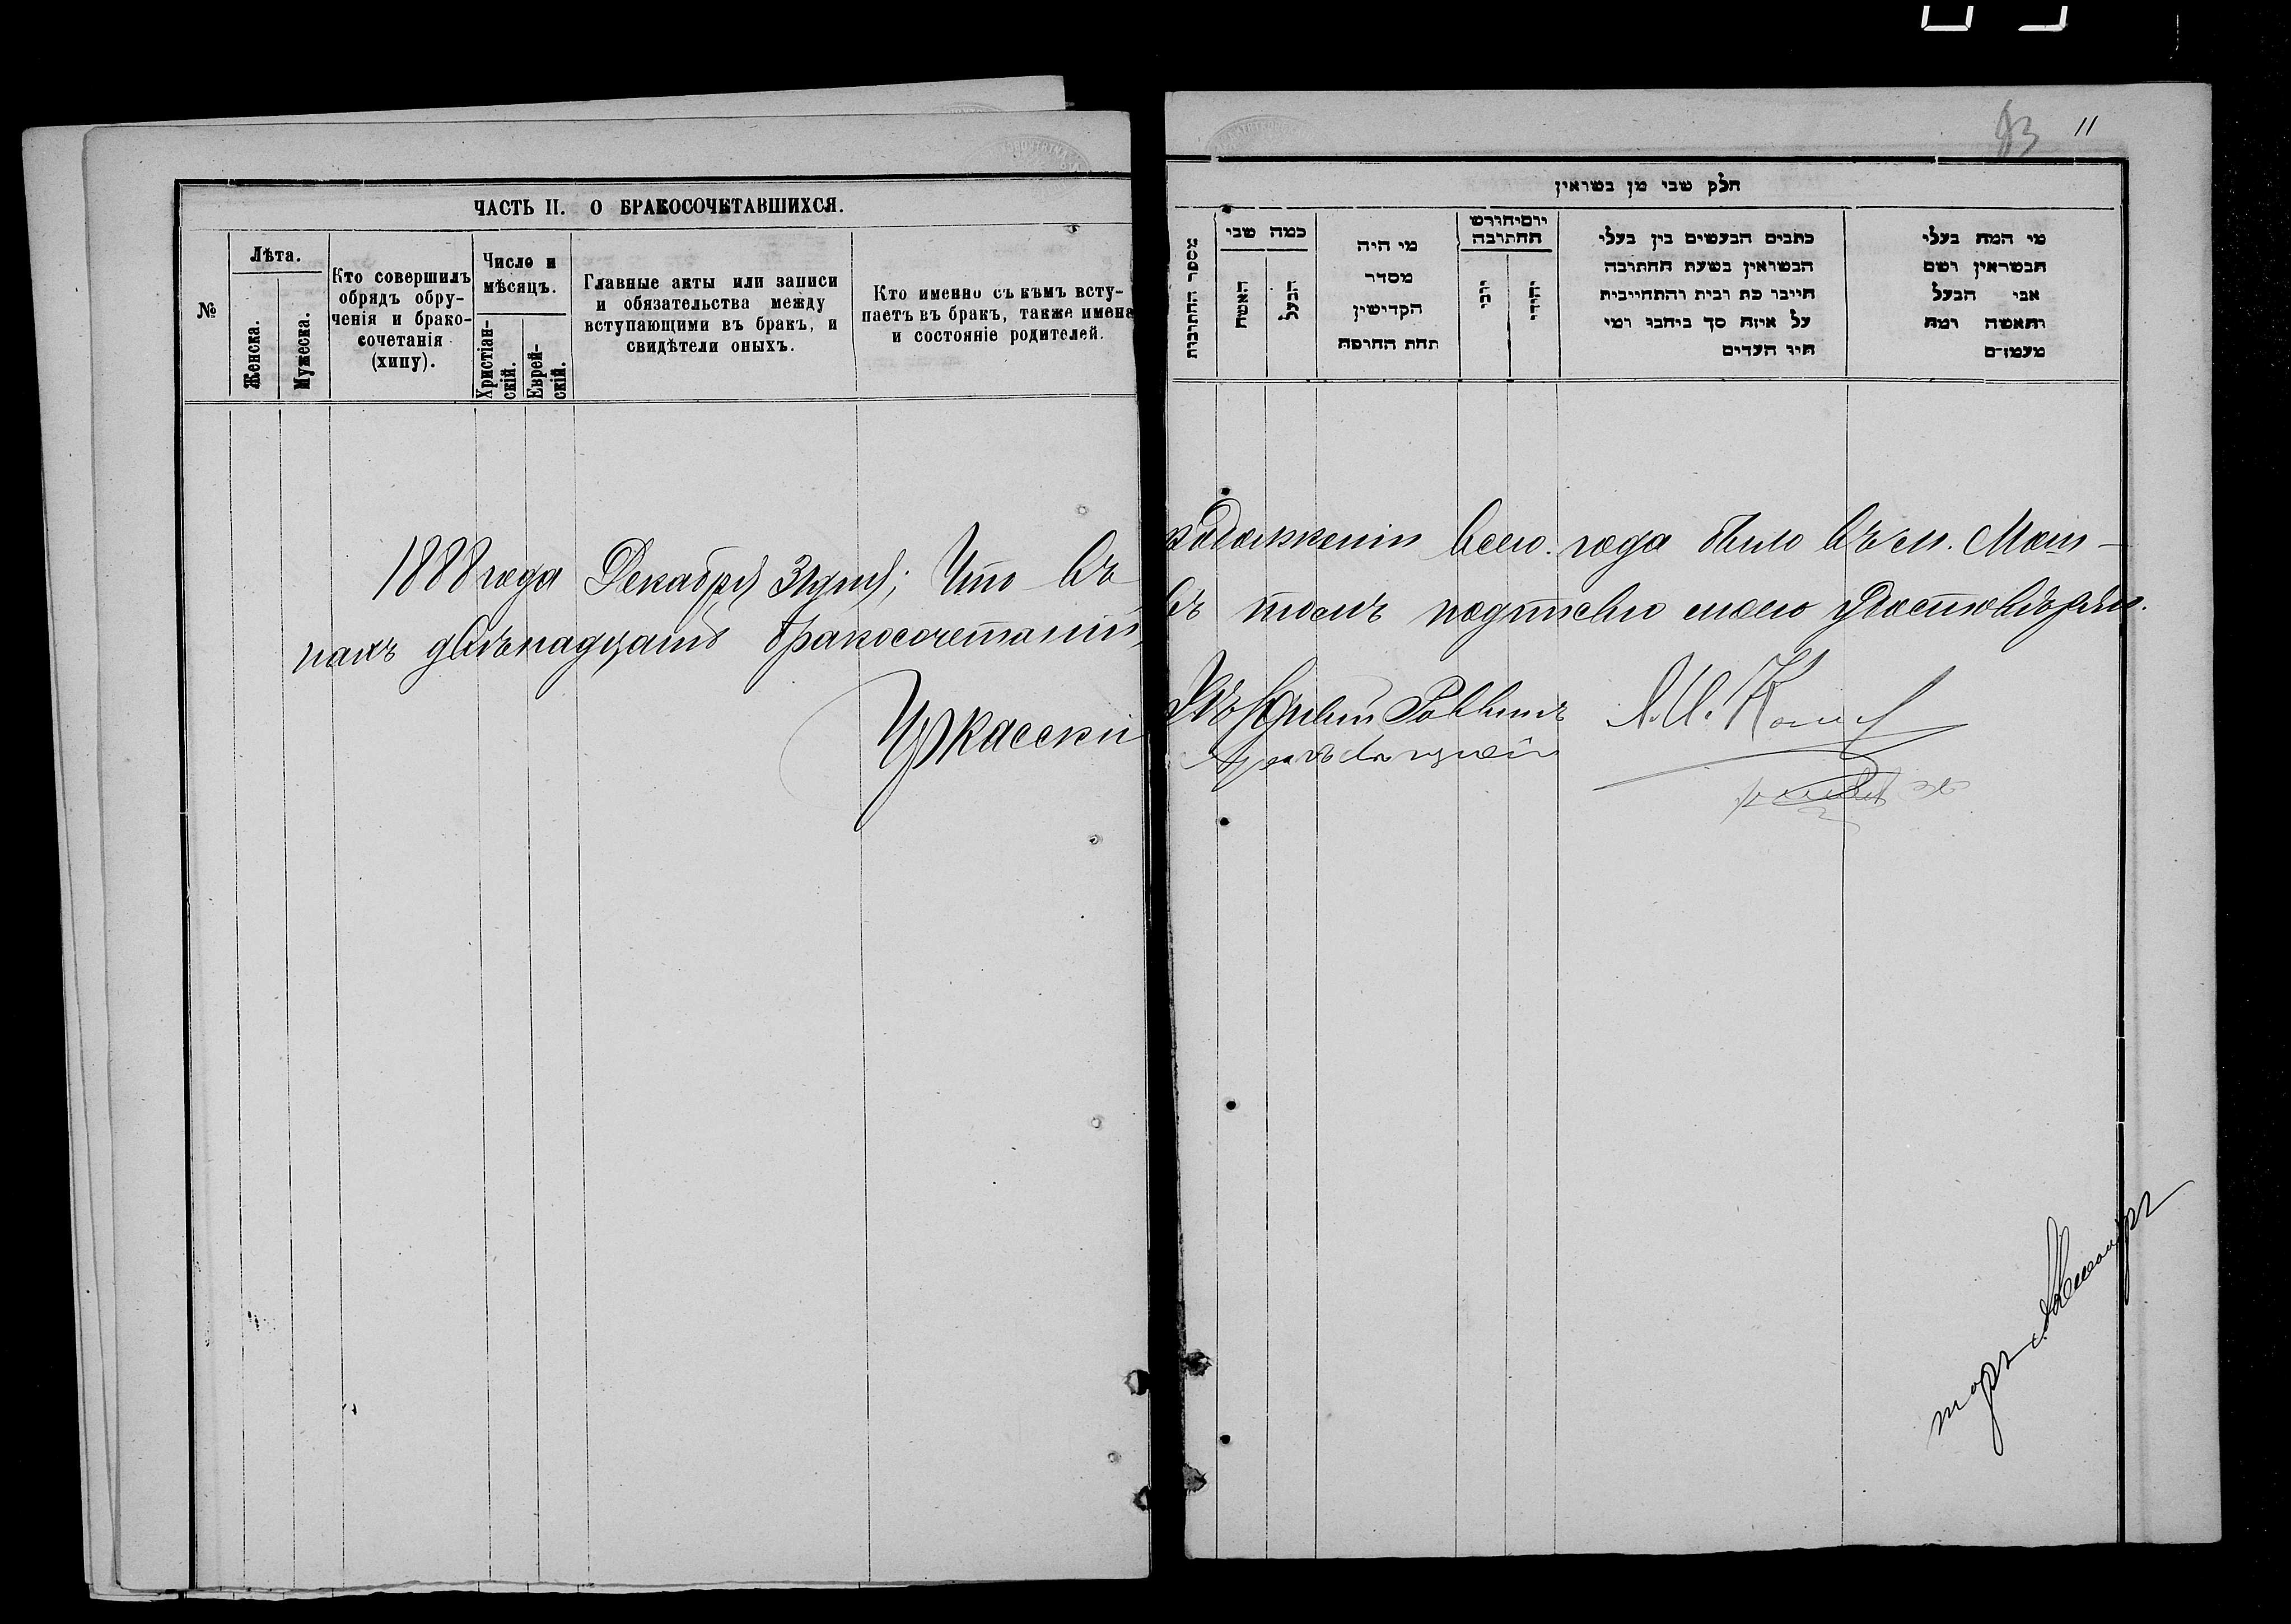 11
ЧАСТЬ II. О БРАКОСОЧЕТАВШИХСЯ.
№
Лѣта.
Женска.
Мужеска.
Кто совершилъ
обрядъ обру-
ченія и брако-
сочетанія
(хипу).
Число и
мѣсяцъ.
Христіан-
скій.
Еврей-
скій.
Главные акты или записи
и обязательства между
вступающими въ бракъ, и
свидѣтели оныхъ.
Кто именно съ кѣмъ всту-
паетъ въ бракъ, также имена
и состояніе родителей.
חלק שני מן נשואין
מספר החתונות
כמה שני
האשה
הבעל
מי היה
מסדר
הקדישין
תחת החופה
יום וחודש
החתונה
יוני
יהודי
כתבים הנעשים בין בעלי
הנשואין בשעת החתונה
חייבו כת רבית והתחייבית
על איזה סך ביחבו ומי
היו העדים
מי המה בעלי
הנשואין ושם
אבי הבעל
והאשה ומה
מעמדם
1888 года Декабря 31 дня; Что въ
продолженіи всего года было въ м. Мош-
нахъ двѣнадцать бракосочетаній,
въ томъ подписью моею удостовѣряю.
Черкасскій
Уѣздный Раввинъ